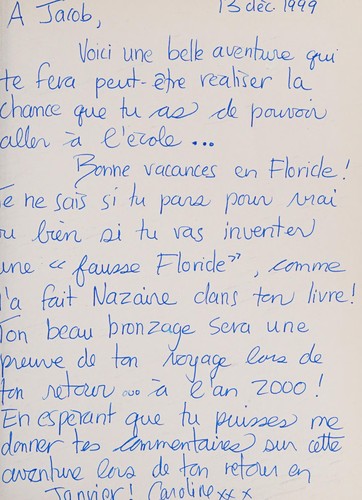 A Jacob,
13 déc. 1999
Voici une belle aventure qui
te fera peut-être réaliser la
chance que tu as de pouvoir
aller à l'école...
Bonne vacances en Floride!
Je ne sais si tu pars pour vrai
ou bien si tu vas inventer
une « fausse Floride », comme
l'a fait Nazaire dans ton livre!
Ton beau bronzage sera une
preuve de ton voyage lors de
ton retour... à l'an 2000!
En espérant que tu puisses me
donner tes commentaires sur cette
aventure lors de ton retour en
Janvier! Caroline xxx